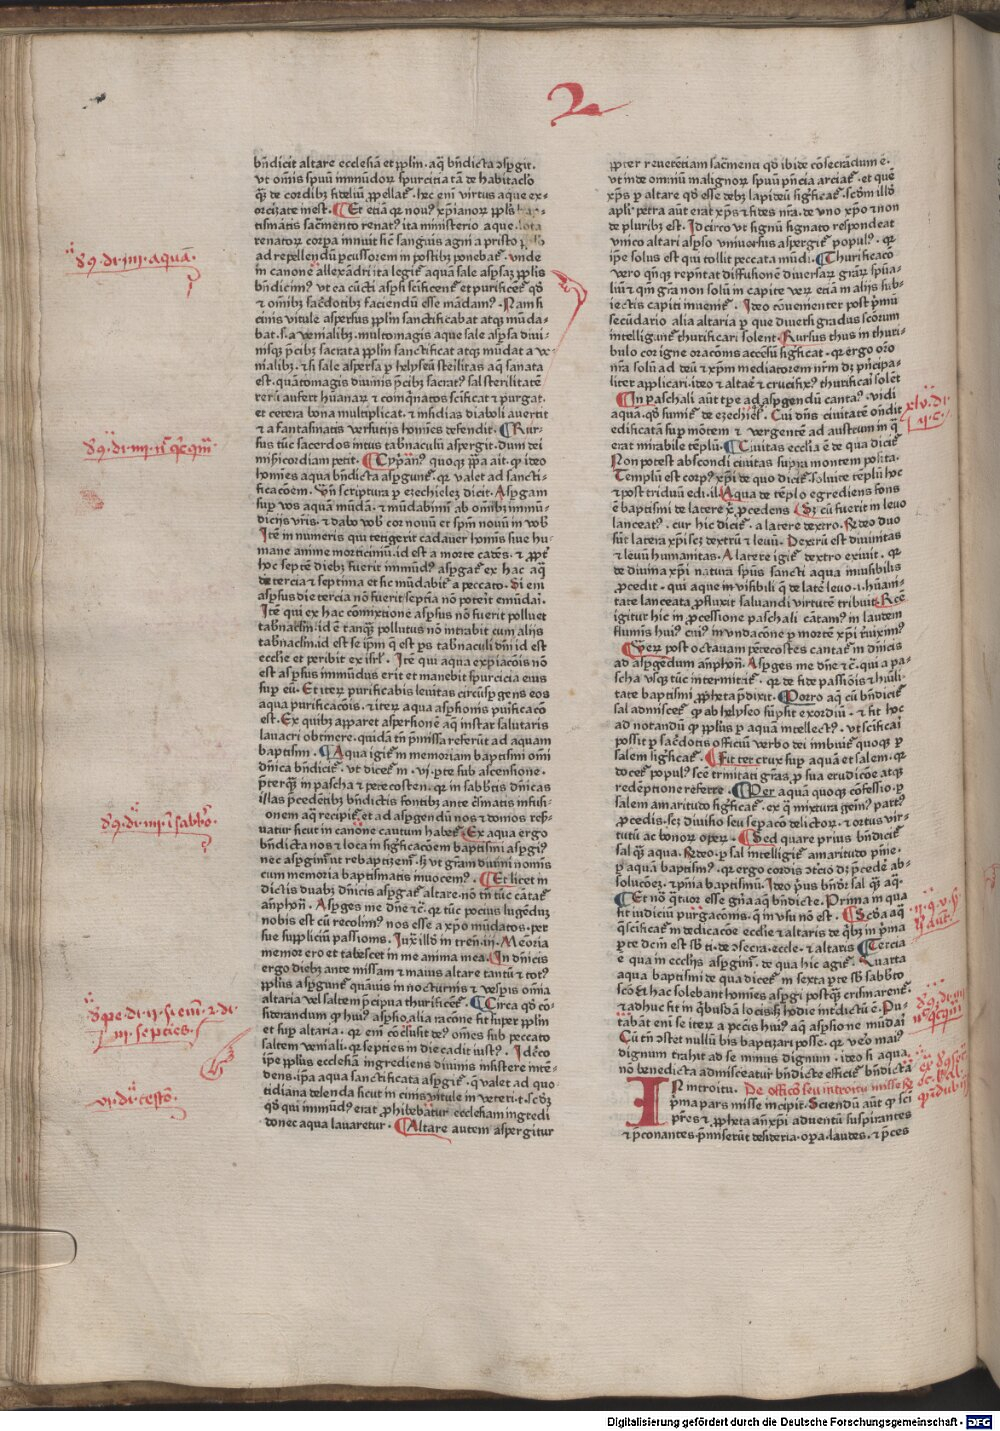 2
bñdicit altare ecclesiã et pplm · aq̃ bñdicta ꝯspgit.
vt om̃is spuũ immũdoꝝ spurcitia tã de habitaclo
q̃ de cordibꝫ fideliũ ppellat᷒. hec eni virtus aque ex-
orcizate inest. Et etiã qꝛ nouꝰ xp̃ianoꝝ pplꝰ
tismatis sac̃mento renatꝰ ita ministerio aque
renatoꝝ corpa innuit hic̃ sanguis agni a pristo
ad repellendũ pcussorem in postibꝫ ponebat᷒. vnde
in canone allexãdri ita legit᷒ aquã sale aspsaꝫ pplis
bñdicimꝰ vt ea cũcti aspsi scificent᷒ et purificent᷒ qđ
⁊ om̃ibꝫ sacdotibꝫ faciendũ esse mãdamꝰ. Nam si
cinis vitule aspersus pplm sanctificabat atqꝫ mũda-
bat · s · a venialibꝫ · multomagis aque sale aspsa diui-
nisqꝫ p̃cibꝫ sacrata pplm sanctificat atqꝫ mũdat a ve-
nialibꝫ · ⁊ si sale aspersa p helyseũ sterilitas aq̃ sanata
est · quãtomagis diuinis p̃cibꝫ sacratꝰ sal sterilitatẽ
reꝝ aufert hũanaꝝ ⁊ coinq̃natos scificat ⁊ purgat ·
et cetera bona multiplicat · ⁊ insidias diaboli auertit
⁊ a fantasmatis versutijs hom̃ies defendit · Rur-
sus tũc sacerdos intus tabnaculũ aspergit · dum dei
mĩcordiam petit. Cyprianꝰ quoqꝫ ppa ait · ꝙ ideo
hom̃ies aqua bñdicta aspgunt᷒ · qꝛ valet ad sancti-
ficacõem. Vñ scriptura p ezechielez dicit. Aspgam
sup vos aquã mũdã · ⁊ mũdabimĩ ab om̃ibꝫ inmũ-
dicijs vr̃is · ⁊ dabo vob̃ cor nouũ et spm̃ nouũ in vob̃
Itẽ in numeris qui tetigerit cadauer hom̃is siue hu-
mane anime morticiniũ · id est a morte cadẽs · ⁊ ppt̃
hoc septẽ diebꝫ fuerit immũdꝰ aspgat᷒ ex hac aq̃
die tercia ⁊ septima et sic mũdabit᷒ a peccato. Si eni
aspsus die tercia nõ fuerit septĩa nõ poterit emũdari.
Itẽ qui ex hac cõmixtione aspsus nõ fuerit polluet
tabnaclm · id ẽ tanqꝫ pollutus nõ intrabit cum alijs
tabnaclm · id est se ip̃m q̃ est ps tabnaculi dñi id est
ecclie et peribit ex isrl᷒. Itẽ qui aqua expiacõis nõ
est aspsus immũdus erit et manebit spurcicia eius
sup eũ. Et iteꝝ purificabis leuitas circũspgens eos
aqua purificacõis · ⁊ iteꝝ aqua asp̃sionis puificacõ
est. Ex quibꝫ apparet aspersionẽ aq̃ instar salutaris
lauacri obtinere. quidã tñ p̃missa referũt ad aquam
baptismi. Aqua igit᷒ in memoriam baptismi om̃i
dñica bñdicit᷒ · vt dicet᷒ in · vj · pte sub ascensione ·
p̃terqꝫ in pascha ⁊ petecosten. qꝛ in sabbtis dñicas
illas p̃cedẽtibꝫ bñdictis fontibꝫ ante c̃lmatis infusi-
onem aq̃ recipit᷒ et ad aspgendũ nos ⁊ domos reser-
uatur sicut in canõne cautum habet᷒. Ex aqua ergo
bñdicta nos ⁊ loca in sigficacõem baptismi aspgi᷒
nec aspgim̃ vt rebaptizem̃ · sꝫ vt gram diuini nomĩs
cum memoria baptismatis inuocemꝰ. Et licet in
dictis duabꝫ dñicis aspgat᷒ altare · nõ tñ tũc cãtat᷒
añphoñ. Asperges me dñe ⁊c̃. qꝛ tũc pocius lugẽdũꝫ
nobis est cũ recolimꝰ nos esse a xp̃o mũdatos · per
sue suppliciũ passionis. Iux̃ illõ in treñ · iij. Meoria
memor ero et tabescet in me anima mea. In dñicis
ergo diebꝫ ante missam ⁊ maius altare tantũ ⁊ totꝰ
pplus aspgunt᷒ · quãuis in nocturnis ⁊ vespis om̃ia
altaria vel saltem p̃cipua thurificent᷒. Circa qđ cõ-
siderandum ꝙ huiꝰ aspsio alia racõne fit super pplm
et sup altaria. qꝛ eni cõclusit deꝰ om̃es sub peccato
saltem veniali. qꝛ septies in die cadit iustꝰ. Idcirco
ip̃e pplus ecclesiã ingrediens diuinis misteriis inte-
dens. ip̃a aqua sanctificata aspgit᷒. q̃ valet ad quo
tidiana delenda sicut in cinis vitule in veteri · t · scdꝫ
qđ qui immũdꝰ erat phibebatur ecclesiam ingredi
donec aqua lauaretur. Altare autem aspergitur
ppter reuerẽtiam sac̃menti qđ ibidẽ cõsecrãdum ẽ.
vt inde omniũ malignoꝝ spuũ p̃ncia arceat᷒. et quẽ
xp̃s p altare qđ esse debꝫ lapideũ sigficat᷒. scdm illđ
apli · petra aũt erat xp̃s ⁊ fides nr̃a · de vno xp̃o ⁊ non
de pluribꝫ est. Idcirco vt signũ signato respondeat
vnico altari aspso vniuersus aspergit᷒ populꝰ. qꝛ
ip̃e solus est qui tollit peccata mũdi. Thurificaco
vero q̃nqꝫ rep̃ntat diffusionẽ diuersaꝝ graꝝ spũa-
liũ ⁊ qm̃ gr̃a non solũ in capite veꝝ etiã in alijs sub-
iectis capiti inuenit᷒. Ideo cõuenienter post p̃mũ
secũdario alia altaria p que diuersi gradus scõrum
intelligunt᷒ thurificari solent. Rursus thus in thuri-
bulo cor igne oracõnis accẽsũ sigficat. qꝛ ergo orõ
nr̃a solũ ad deũ ⁊ xp̃m mediatorem nr̃m dꝫ p̃ncipa-
liter applicari. ideo ⁊ altaẽ ⁊ crucifixꝰ thurificai solẽt
In paschali aũt tp̃e ad aspgendũ cantatꝰ. vidi
aqua. qđ sumit᷒ de ezechiel᷒. Cui dñs ciuitatẽ oñdit
edificatã sup mõtem ⁊ vergentẽ ad austrum in q̃
erat mirabile tẽplũ. Ciuitas ecclia ẽ de qua dicit᷒
Non potest abscondi ciuitas supra montem posita.
Templũ est corpꝰ xp̃i de quo dicit᷒. soluite tẽplũ hoc
⁊ post triduũ edi. ill. Aqua de tẽplo egrediens fons
ẽ baptismi de latere x̃ pcedens. Sꝫ cũ fuerit in leuo
lanceatꝰ. cur hic dicit᷒. a latere dextro. Rdeo duo
sũt latera xp̃i scꝫ dextrũ ⁊ leuũ. Dextrũ est diuinitas
⁊ leuũ humanitas. A latere igit᷒ dextro exiuit. qꝛ
de diuina xp̃i natura spũs sancti aqua inuisibilis
pcedit. qui aque in visibili q̃ de late leuo · i · hũani-
tate lanceata pfluxit saluandi virtutẽ tribuit. Rcẽ
igitur hic in pcessione paschali cãtamꝰ in laudem
fluminis huiꝰ cuiꝰ inundacõne p mortẽ xp̃i r̃uiximꝰ
Veꝝ post octauam petecostes cantat᷒ in dñicis
ad aspgẽdum añphoñ. Aspges me dñe ⁊ c̃. qui a pa-
scha vsqꝫ tũc intermittit᷒. qꝛ de fide passiõis ⁊ hũili-
tate baptismi ppheta p̃dixit. Porro aq̃ cũ bñdicit᷒
sal admiscet᷒ ꝙ ab helyseo sũpsit exordiũ. ⁊ fit hoc
ad notandũ ꝙ pplus p aquam intellectꝰ. vt scificai
possit p sacdotis officiũ verbo dei imbuit᷒ quoqꝫ p
salem sigficat᷒. Fit ter crux sup aquã et salem. qꝛ
docet᷒ populꝰ sce trinitati gras. p sua erudicõe atqꝫ
redẽptione referre. Per aquã quoqꝫ cõfessio. p
salem amaritudo sigficat᷒. ex q̃ mixtura gemĩꝰ partꝰ
pcedit. scꝫ diuisio seu sepacõ delictoꝝ. ⁊ ortus vir-
tutũ ac bonoꝝ opeꝝ. Sed quare prius bñdicit᷒
sal q̃ aqua. Rdeo. p sal intelligit᷒ amaritudo pñie.
p aquã baptismꝰ. qꝛ ergo cordis ꝯtricio dꝫ p̃cedẽ ab-
solucõez. ⁊ pñia baptismũ. Ideo p̃us bñdꝝ sal q̃ aq̃.
Et nõ q̃tuoꝝ esse gña aq̃ bñdicte. Prima in qua
fit iudiciũ purgacõnis. q̃ in vsu nõ est. Scđa aq̃
q̃ scificat᷒ in dedicacõe ecclie ⁊ altaris de q̃bꝫ in p̃ma
pte dcm̃ est sb̃ ti. de ꝯsecra. eccle. ⁊ altaris. Tercia
ẽ qua in ecclijs aspgim̃. de qua hic agit᷒. Quarta
aqua baptismi de qua dicet᷒ in sexta pte sb̃ sabbto
scõ · ⁊ hac solebant hom̃ies aspgi postq̃ crismarent᷒
⁊ adhuc fit in q̃busdã locis. sꝫ hodie int̃dictũ ẽ. Pu-
tabãt eni se iteꝝ a pctis huiꝰ aq̃ aspsione mũdai
Cũ tñ ꝯstet nullũ bis baptizari posse. qꝛ vero maiꝰ
dignum trahit ad se minus dignum. ideo si aqua
nõ benedicta admisceatur bñdicte efficit᷒ bñdicta
In introitu. De officio seu introitu misse R
p̃ma pars misse incipit. Sciendũ aũt ꝙ sci
p̃res ⁊ ppheta añ xp̃i aduentũ suspirantes
⁊ p̃conantes. p̃misserũt desideria. opa. laudes. ⁊ p̃ces